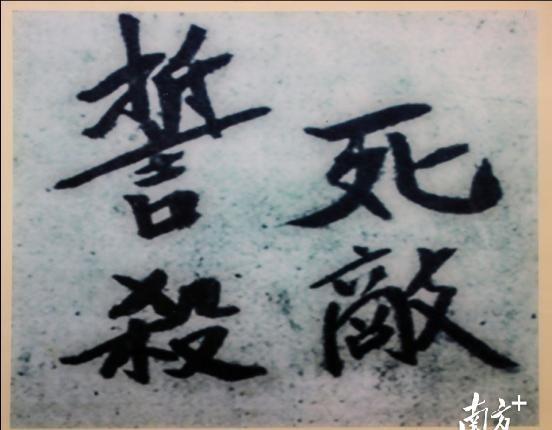 誓死
殺敵
南方+